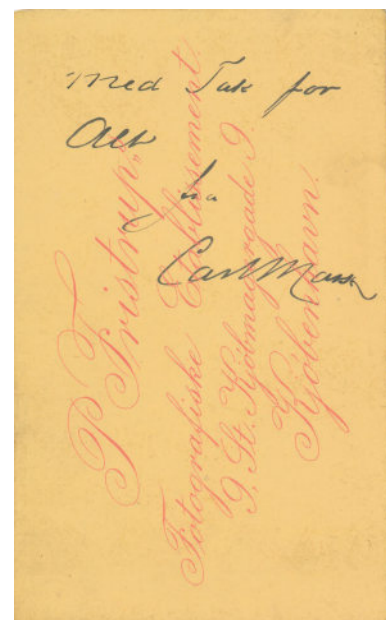 Med Tak for
Alt
fra
Carl
P. Fristrup's
Fotografiske Etablissement
9. St. Kjöbmagergade 9.
Kjöbenhavn.